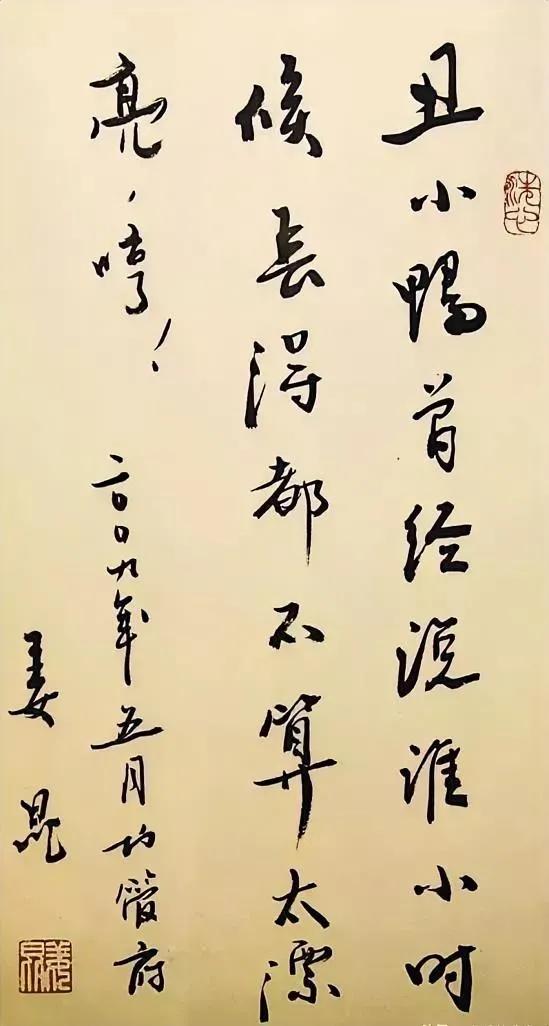 丑小鸭曾经说谁小时
候长得都不算太漂
亮，哼！
二〇〇九年五月 府
姜昆
姜昆